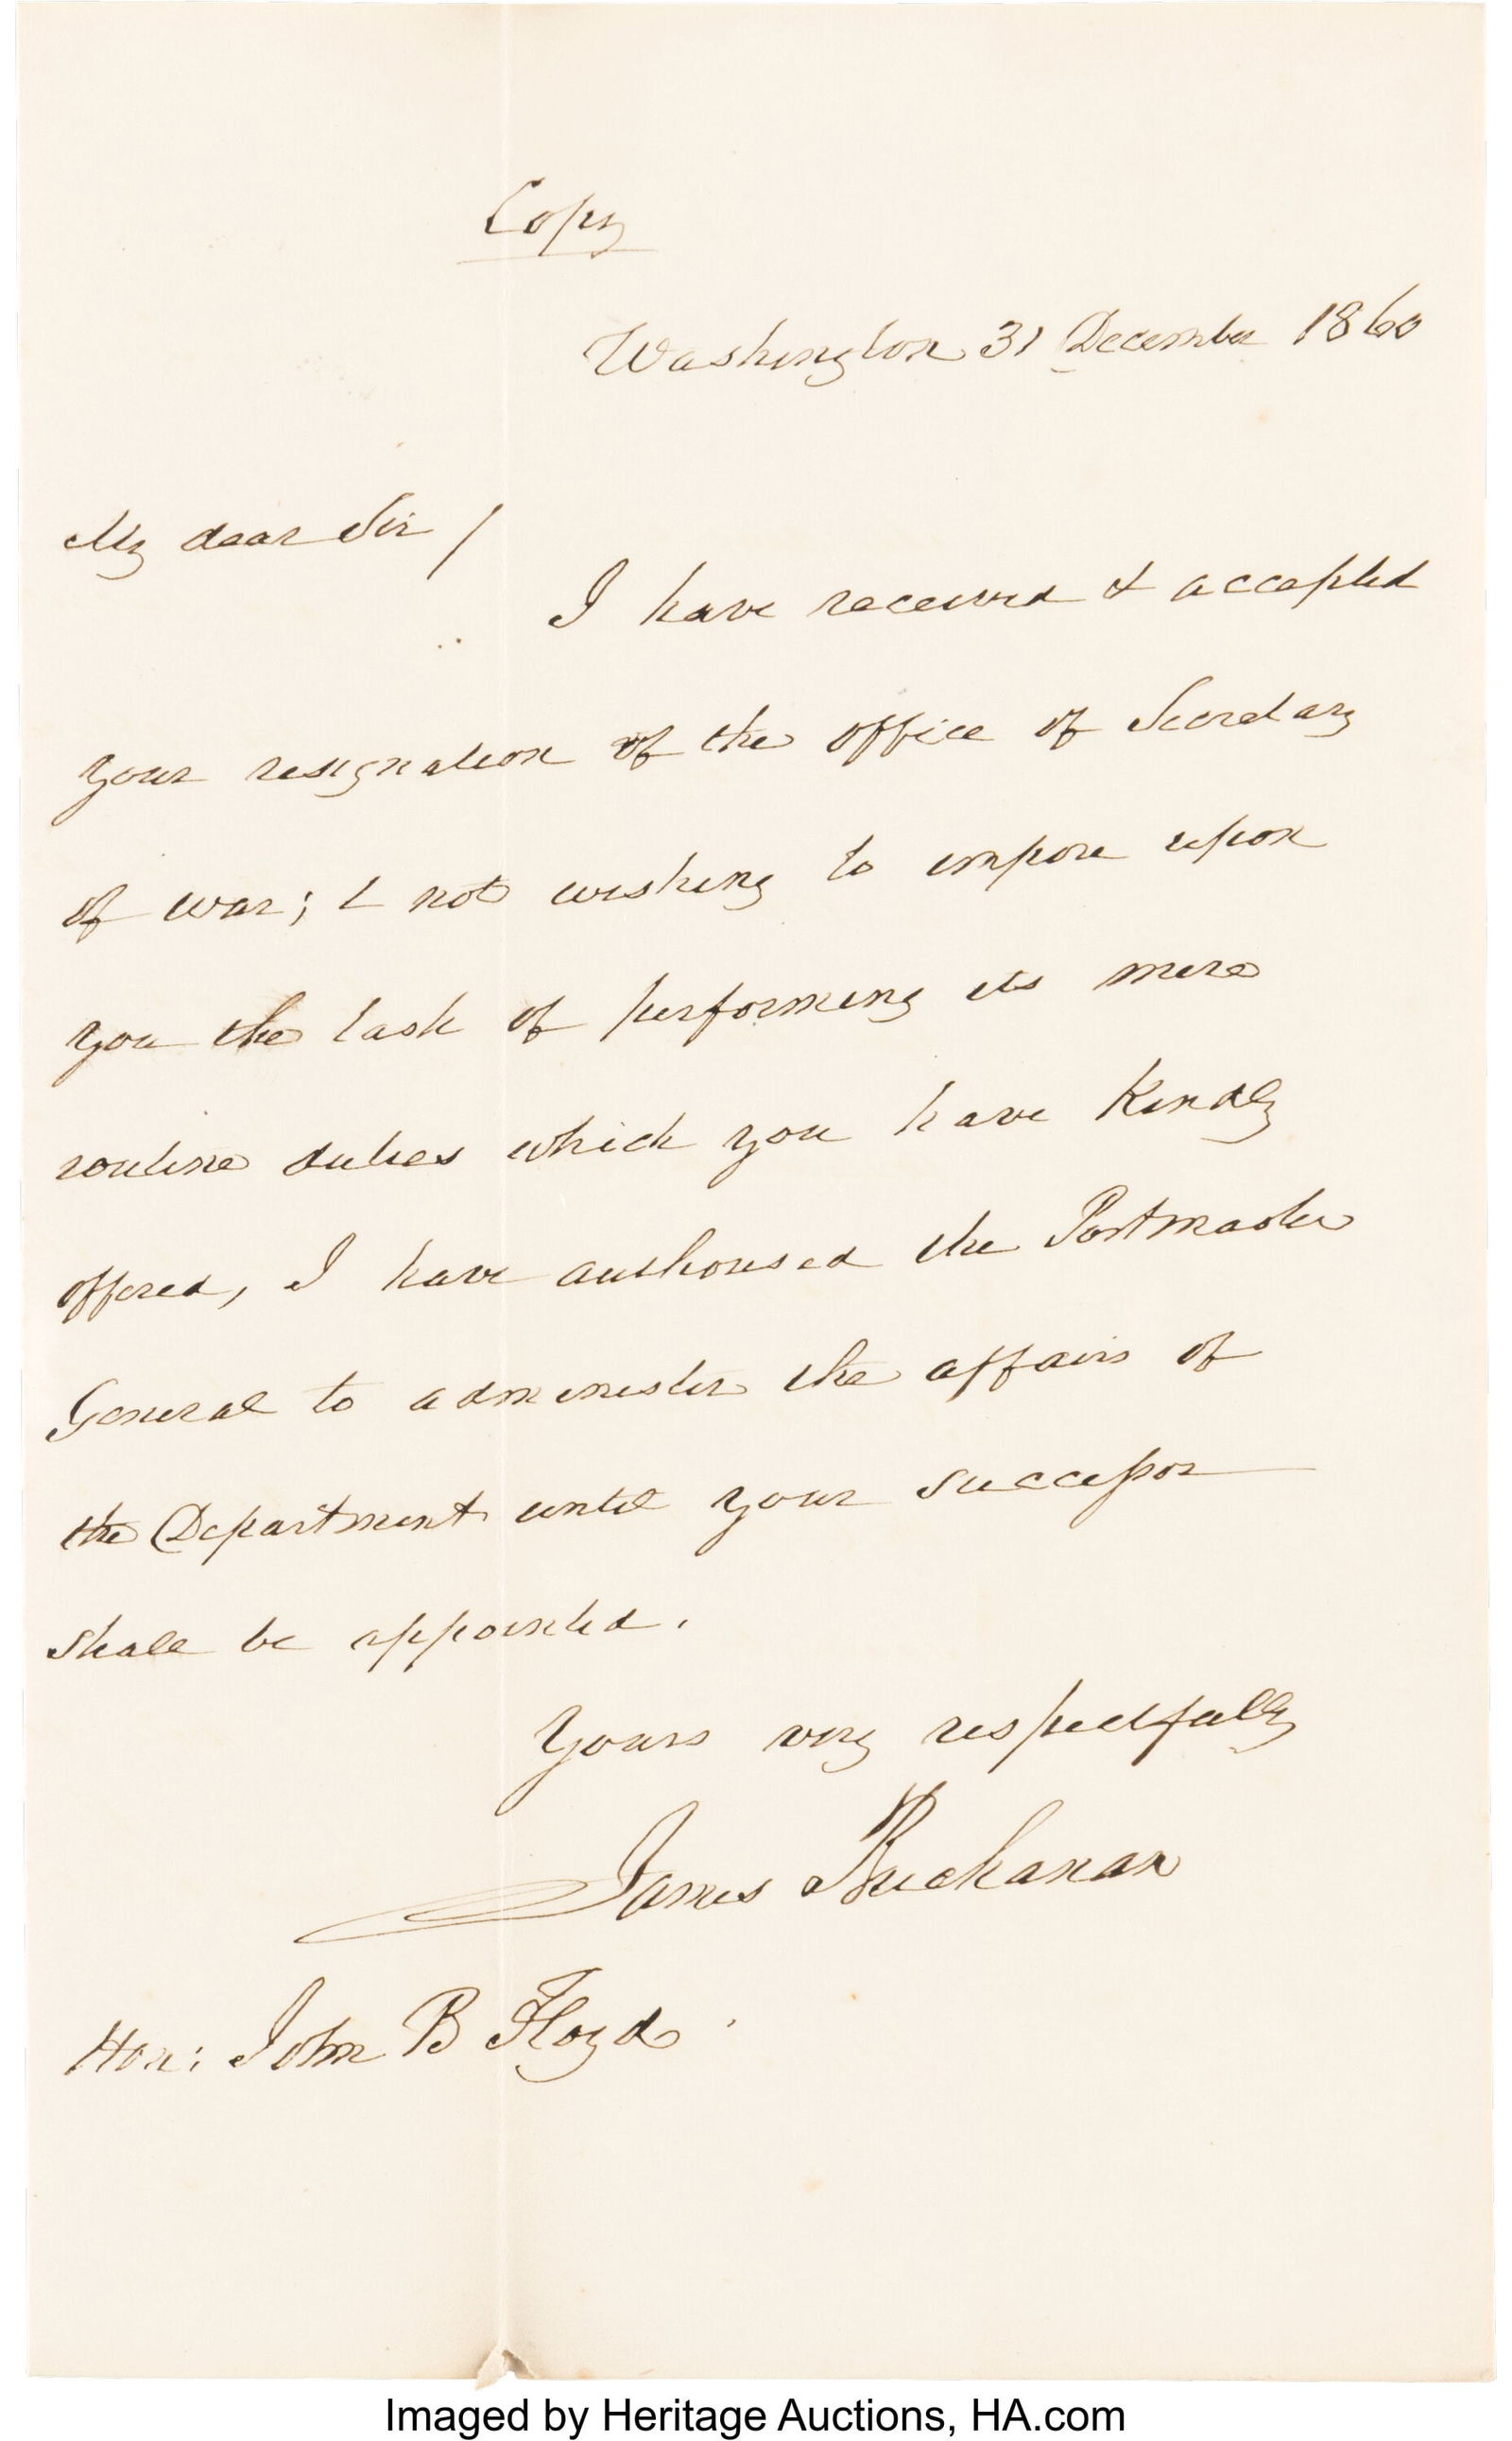 Copy
Washington 31 December 1860
My dear Sir /
I have received & accepted
your resignation of the office of Secretary
of war; & not wishing to impose upon
you the task of performing its mere
routine duties which you have Kindly
offered, I have authorised the Postmaster
General to administer the affairs of
the Department until your successor
shall be appointed.
Yours very respectfully
James Buchanan
Hon: John B Floyd.
Imaged by Heritage Auctions, HA.com